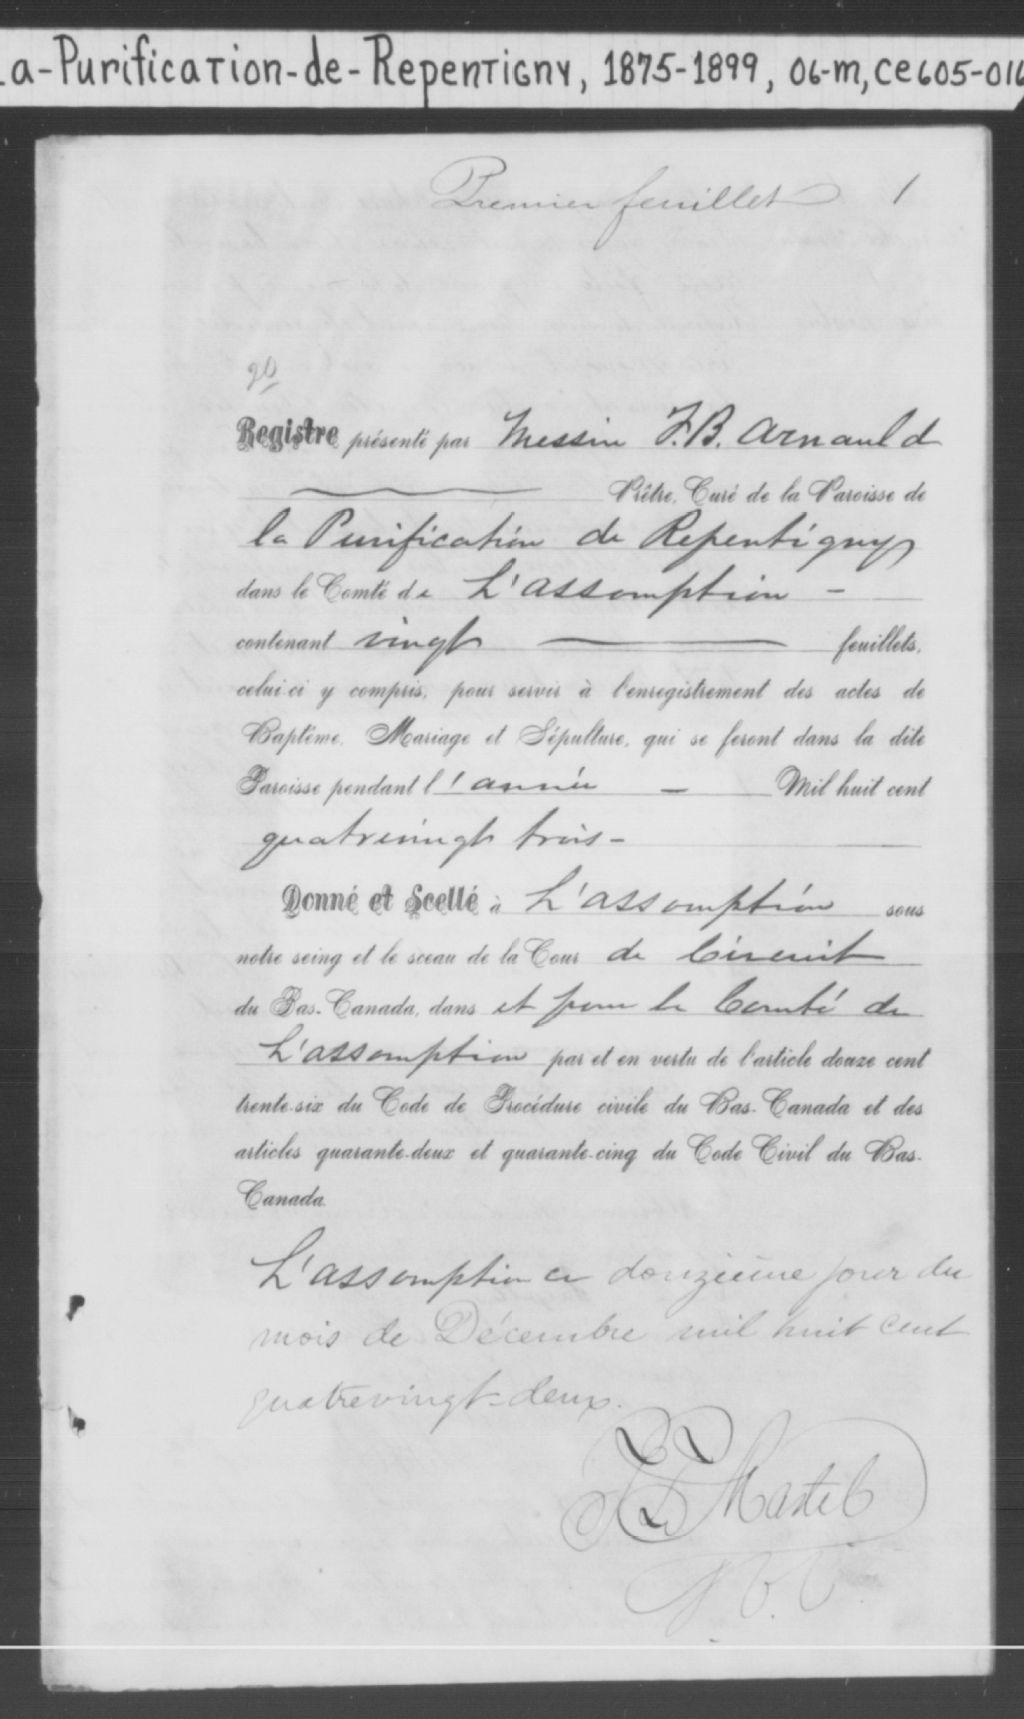 La-Purification-de-Repentigny, 1875-1899, 06-m, ce605-016
Premier feuillet 1
20
Registre présenté par Messire F.B. Arnauld
Prêtre, Curé de la Paroisse de
la Purification de Repentigny
dans le Comté de L'assomption -
contenant vingt feuillets,
celui-ci y compris, pour servir à l'enregistrement des actes de
Baptême, Mariage et Sépulture, qui se feront dans la dite
Paroisse pendant l'année - Mil huit cent
quatrevingt trois -
Donné et Scellé à L'assomption sous
notre seing et le sceau de la Cour de Circuit
du Bas-Canada, dans et pour le Comté de
L'assomption par et en vertu de l'article douze cent
trente-six du Code de Procédure civile du Bas-Canada et des
articles quarante-deux et quarante-cinq du Code Civil du Bas-
Canada.
L'assomption ce douzième jour du
mois de Décembre mil huit cent
quatrevingt-deux.
Martel